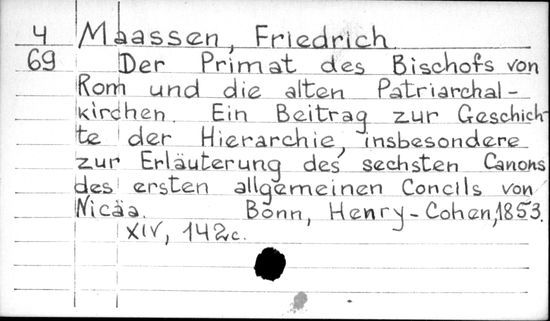 4 Maassen, Friedrich.
69 Der Primat des Bischofs von
Rom und die alten Patriarchal-
kirchen. Ein Beitrag zur Geschich-
te der Hierarchie, insbesondere
zur Erläuterung des sechsten Canons
des ersten allgemeinen Concils von
Nicäa. Bonn, Henry-Cohen, 1853.
XIV, 142c.